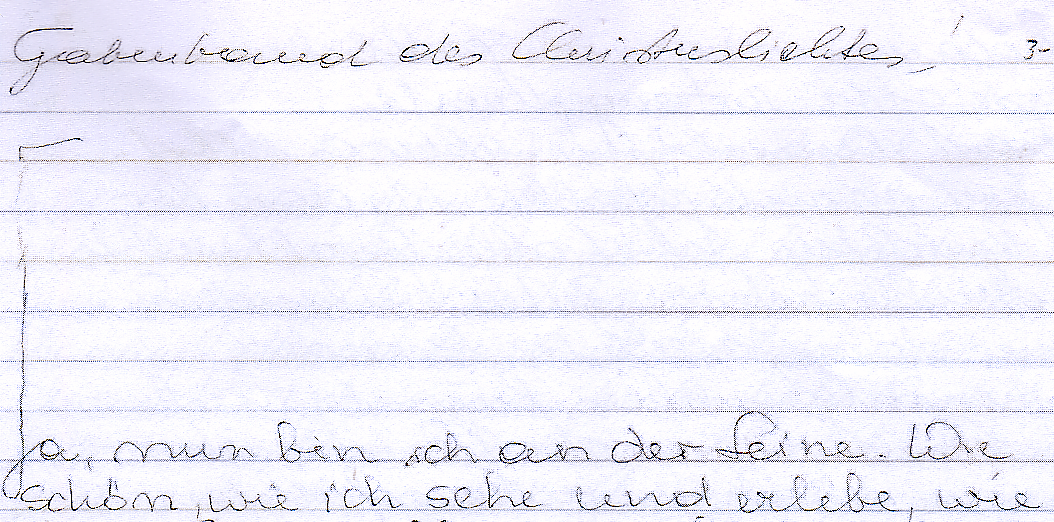 Gabenband des Christuslichtes, ! 3-
Ja, nun bin ich an der Seine. Wie
schön, wie ich sehe und erlebe, wie